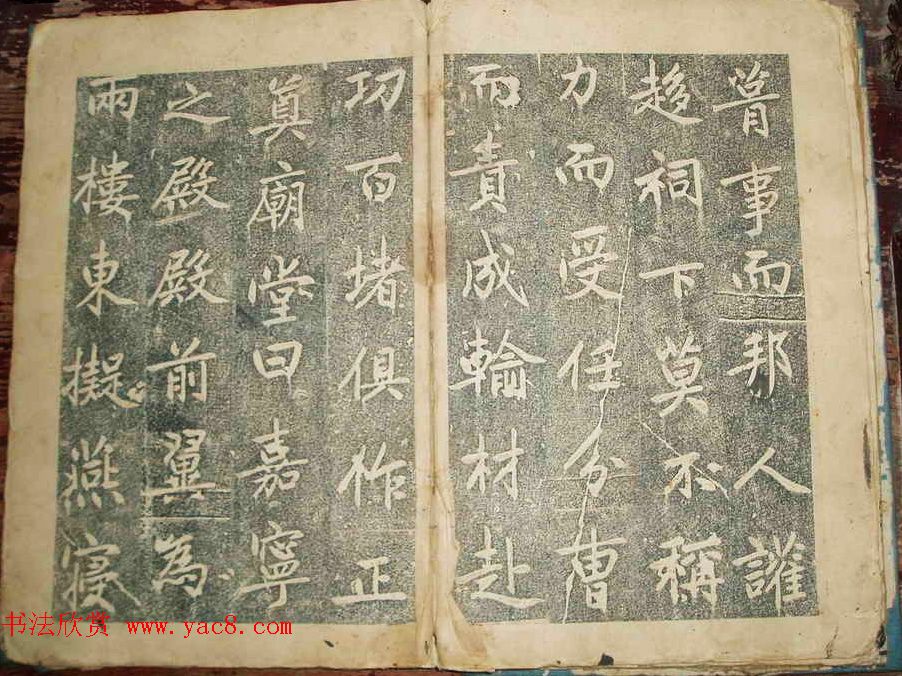 事而邦人讙
趍祠下莫不稱
力而受任分曹
而責成輪材赴
功百堵俱作正
廟堂曰嘉寧
之殿殿前翼為
兩樓東擬燕寢
书法欣赏 www.yac8.com